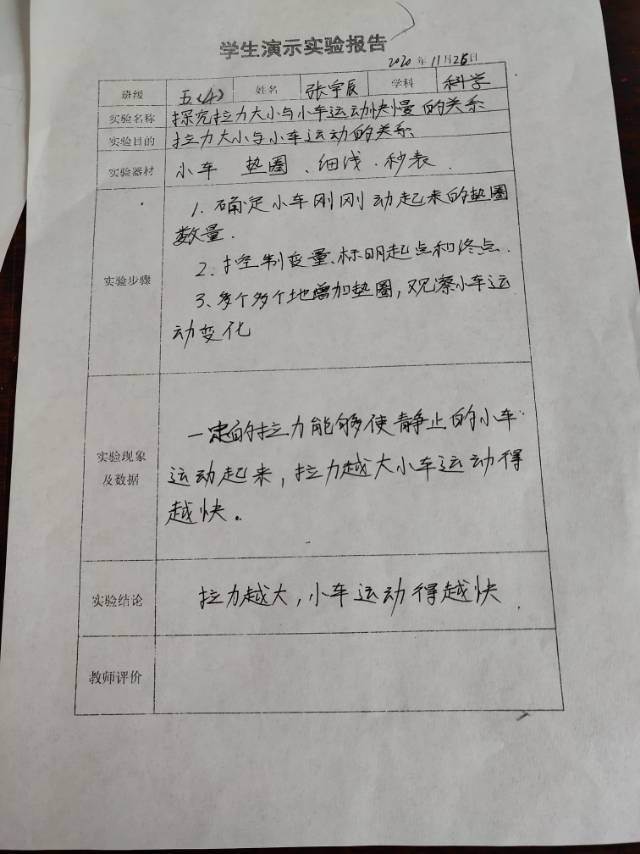 学生演示实验报告
2020年11月26日
班级 五(4) 姓名 张宇辰 学科 科学
实验名称 探究拉力大小与小车运动快慢的关系
实验目的 拉力大小与小车运动的关系
实验器材 小车 垫圈、细浅、秒表
1、确定小车刚刚动起来的垫圈
数量.
2、控制变量、标明起点和终点.
实验步骤
3、多个多个地增加垫圈,观察小车运
动变化
一定的拉力能够使静止的小车
实验现象
及数据
运动起来,拉力越大小车运动得
越快。
实验结论 拉力越大,小车运动得越快.
教师评价